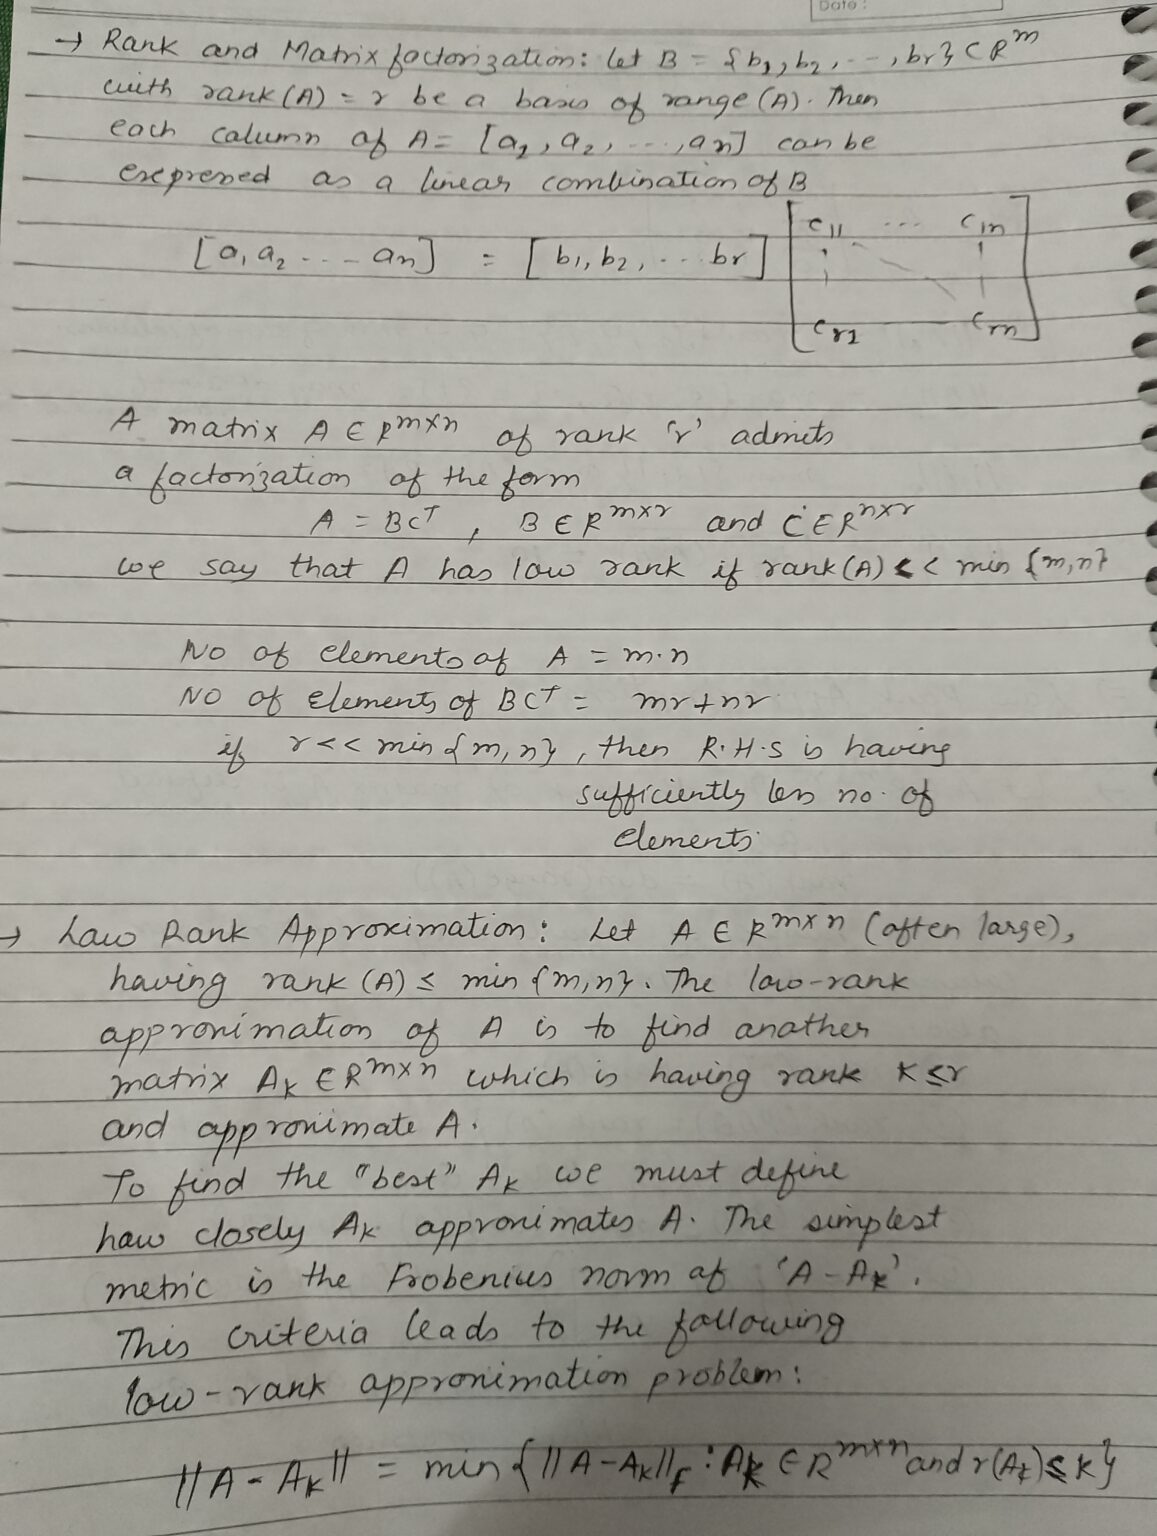 Date:
→ Rank and Matrix factorization: let B = {b1, b2, --, br} ⊂ R^m
with rank(A) = r be a basis of range (A). Then
each column of A = [a1, a2, ---, an] can be
expressed as a linear combination of B
[a1 a2 --- an] = [b1, b2, --- br] [c11 ... c1n
⋮ ⋮
cr1 crn]
A matrix A ∈ R^m×n of rank 'r' admits
a factorization of the form
A = BC^T , B ∈ R^m×r and C ∈ R^n×r
we say that A has low rank if rank(A) << min {m,n}
No of elements of A = m.n
No of elements of BC^T = mr+nr
if r << min {m,n}, then R.H.S is having
sufficiently less no. of
elements.
→ Low Rank Approximation: Let A ∈ R^m×n (often large),
having rank (A) ≤ min {m,n}. The low-rank
approximation of A is to find another
matrix Ak ∈ R^m×n which is having rank k≤r
and approximate A.
To find the "best" Ak we must define
how closely Ak approximates A. The simplest
metric is the Frobenius norm of 'A-Ak'.
This criteria leads to the following
low-rank approximation problem:
||A-Ak|| = min {||A-Ak||F : Ak ∈ R^m×n and r(Ak) ≤ k}